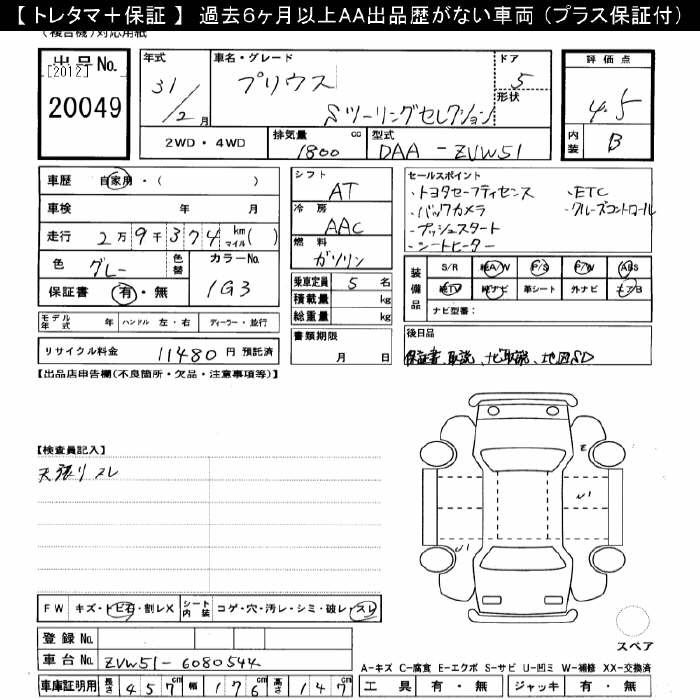 【 トレタマ＋保証 】 過去6ヶ月以上AA出品歴がない車両 (プラス保証付)
(複合機)対応用紙
出品No.
[2012]
20049
年式
31/2月
車名・グレード
プリウス
Sツーリングセレクション
ドア
5
形状
評価点
4.5
内装
B
2WD・4WD
排気量
1800 cc
型式
DAA - ZVW51
車歴 自家用・( )
車検 年 月
走行 2万9千374 km マイル( )
色 グレー
色替
カラーNo.
1G3
保証書 有・無
モデル年式 年 ハンドル 左・右 ディーラー・並行
リサイクル料金 11480 円 預託済
シフト
AT
冷房
AAC
燃料
ガソリン
乗車定員 5 名
積載量 kg
総重量 kg
書類期限
月 日
セールスポイント
・トヨタセーフティセンス ・ETC
・バックカメラ ・クルーズコントロール
・プッシュスタート
・シートヒーター
装備品
S/R 純A/W P/S P/W ABS
純TV 純ナビ 革シート 外ナビ エアB
ナビ型番:
後日品
保証書、取説、ナビ取説、地図SD
【出品店申告欄(不良箇所・欠品・注意事項等)】
【検査員記入】
天張りスレ
U1
U1
FW キズ・トビ石・割レX シート内装 コゲ・穴・汚レ・シミ・破レ・スレ
登録No.
車台No. ZVW51-6080544
車庫証明用 長さ 457cm 幅 176cm 高さ 147cm
スペア
A-キズ C-腐食 E-エクボ S-サビ U-凹ミ W-補修 XX-交換済
工具 有・無 ジャッキ 有・無